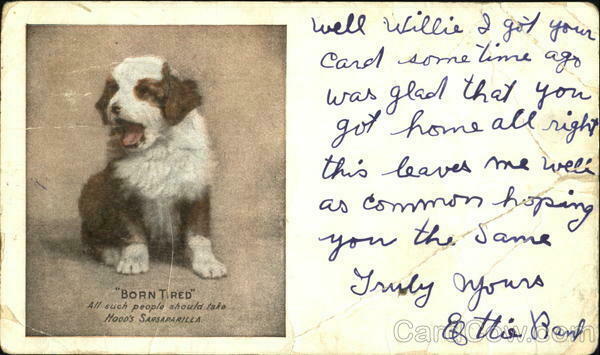 "BORN TIRED"
All such people should take
HOOD'S SARSAPARILLA.
Well Willie I got your
Card some time ago
was glad that you
got home all right
this leaves me well
as common hoping
you the same
Truly Yours
Ettie
CardCow.com